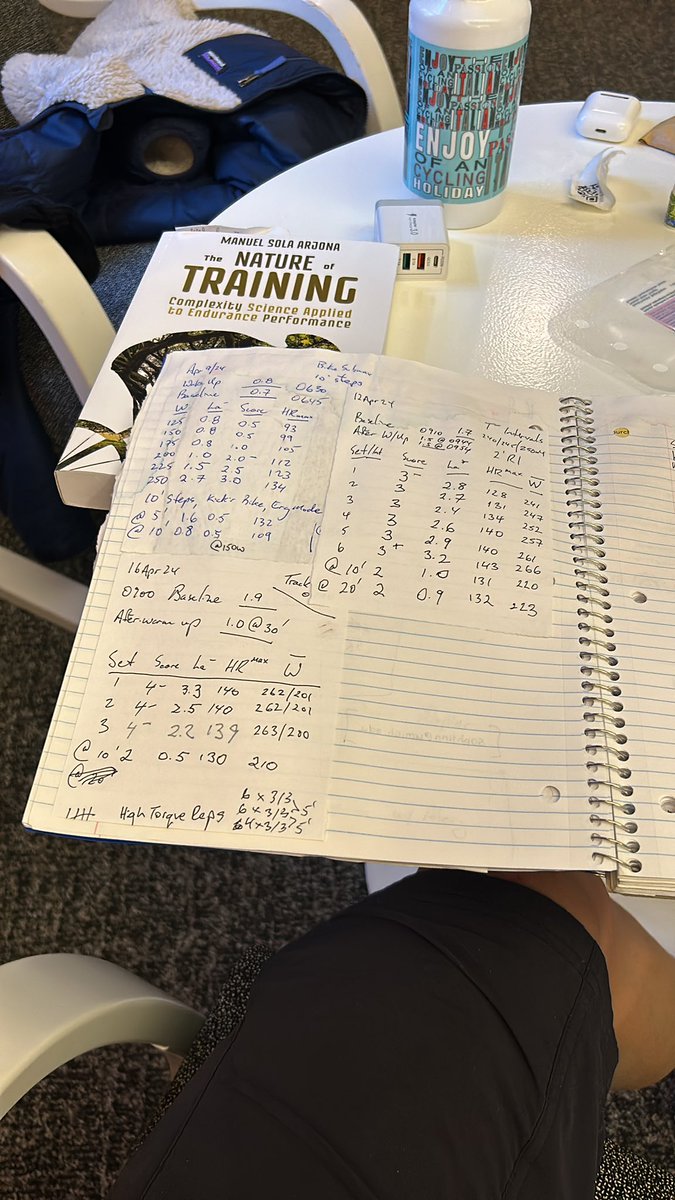 ENJOY
OF AN
CYCLING
HOLIDAY
MANUEL SOLA ARJONA
The NATURE of
TRAINING
Complexity Science Applied
to Endurance Performance
Apr 9/24
Bike Submax
10' steps
Warm Up 0.8 0630
Baseline 0.7 0645
W La- Score HRmax
125 0.8 0.5 93
150 0.8 0.5 99
175 0.8 1.0 105
200 1.0 2.0- 112
225 1.5 2.5 123
250 2.7 3.0 134
10' Steps, Kickr Bike, Erg Mode
@ 5' 1.6 0.5 132
@ 10' 0.8 0.5 109
@150w
12Apr24
Baseline 0910 1.7
After W/Up 1.5 @0944
1.3 @0954
T Intervals
240/245/250W
2' RI
Set/Int Score La- HRmax W
1 3- 2.8 128 241
2 3 2.7 131 247
3 3 2.4 134 252
4 3 2.6 140 257
5 3 2.9 140 261
6 3+ 3.2 143 266
@ 10' 2 1.0 131 220
@ 20' 2 0.9 132 223
16Apr24
0900 Baseline 1.9
After warm up 1.0 @ 30'
Track
Set Score La- HRmax W
1 4- 3.3 140 262/201
2 4- 2.5 140 262/201
3 4- 2.2 139 263/200
@ 10' 2 0.5 130 210
High Torque Reps
6 x 3/3
6 x 3/3 5'
4 x 3/3 5'